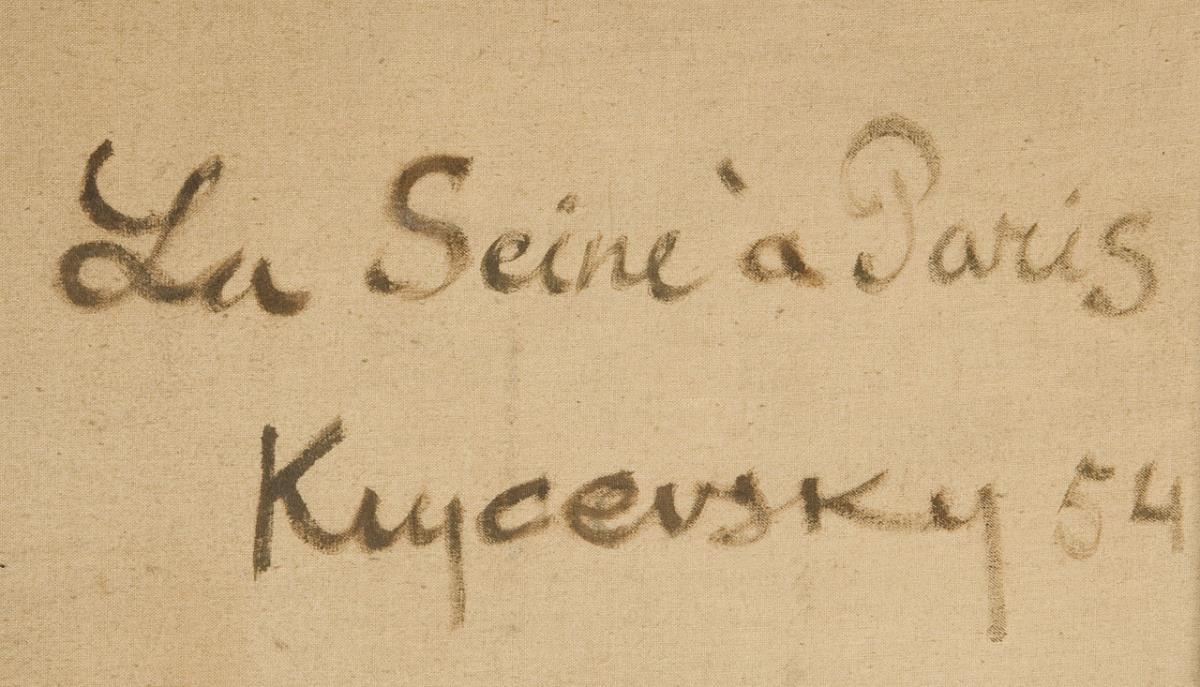 La Seine à Paris
Kuycevsky 54